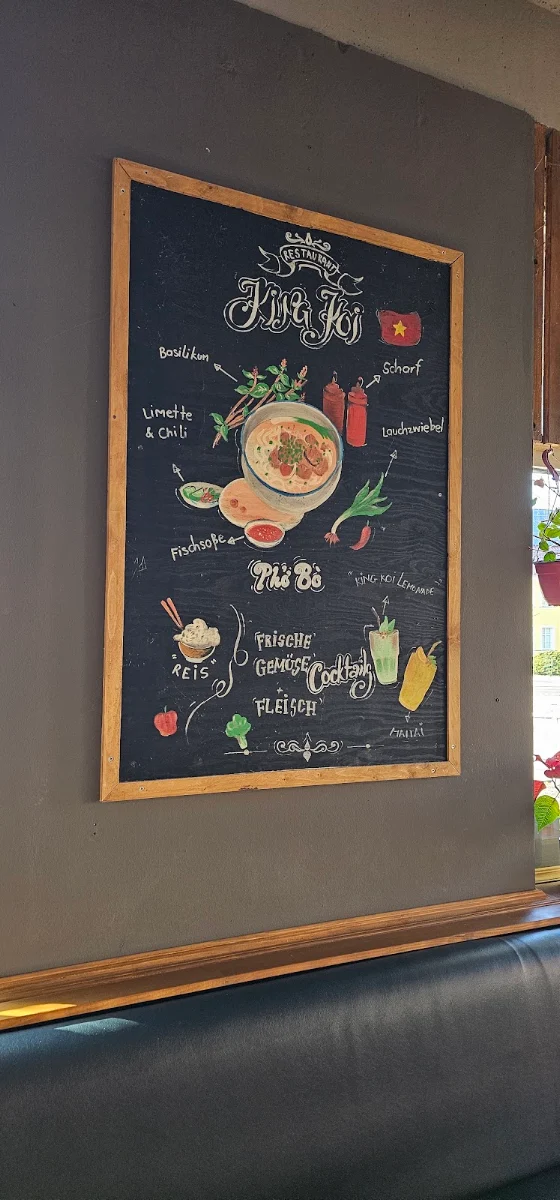 RESTAURANT
King Koi
Basilikum
Scharf
Limette
& Chili
Lauchzwiebel
Fischsoße
Phở Bò
"KING KOI LEMONADE"
"REIS"
FRISCHE
GEMÜSE
+
FLEISCH
Cocktails